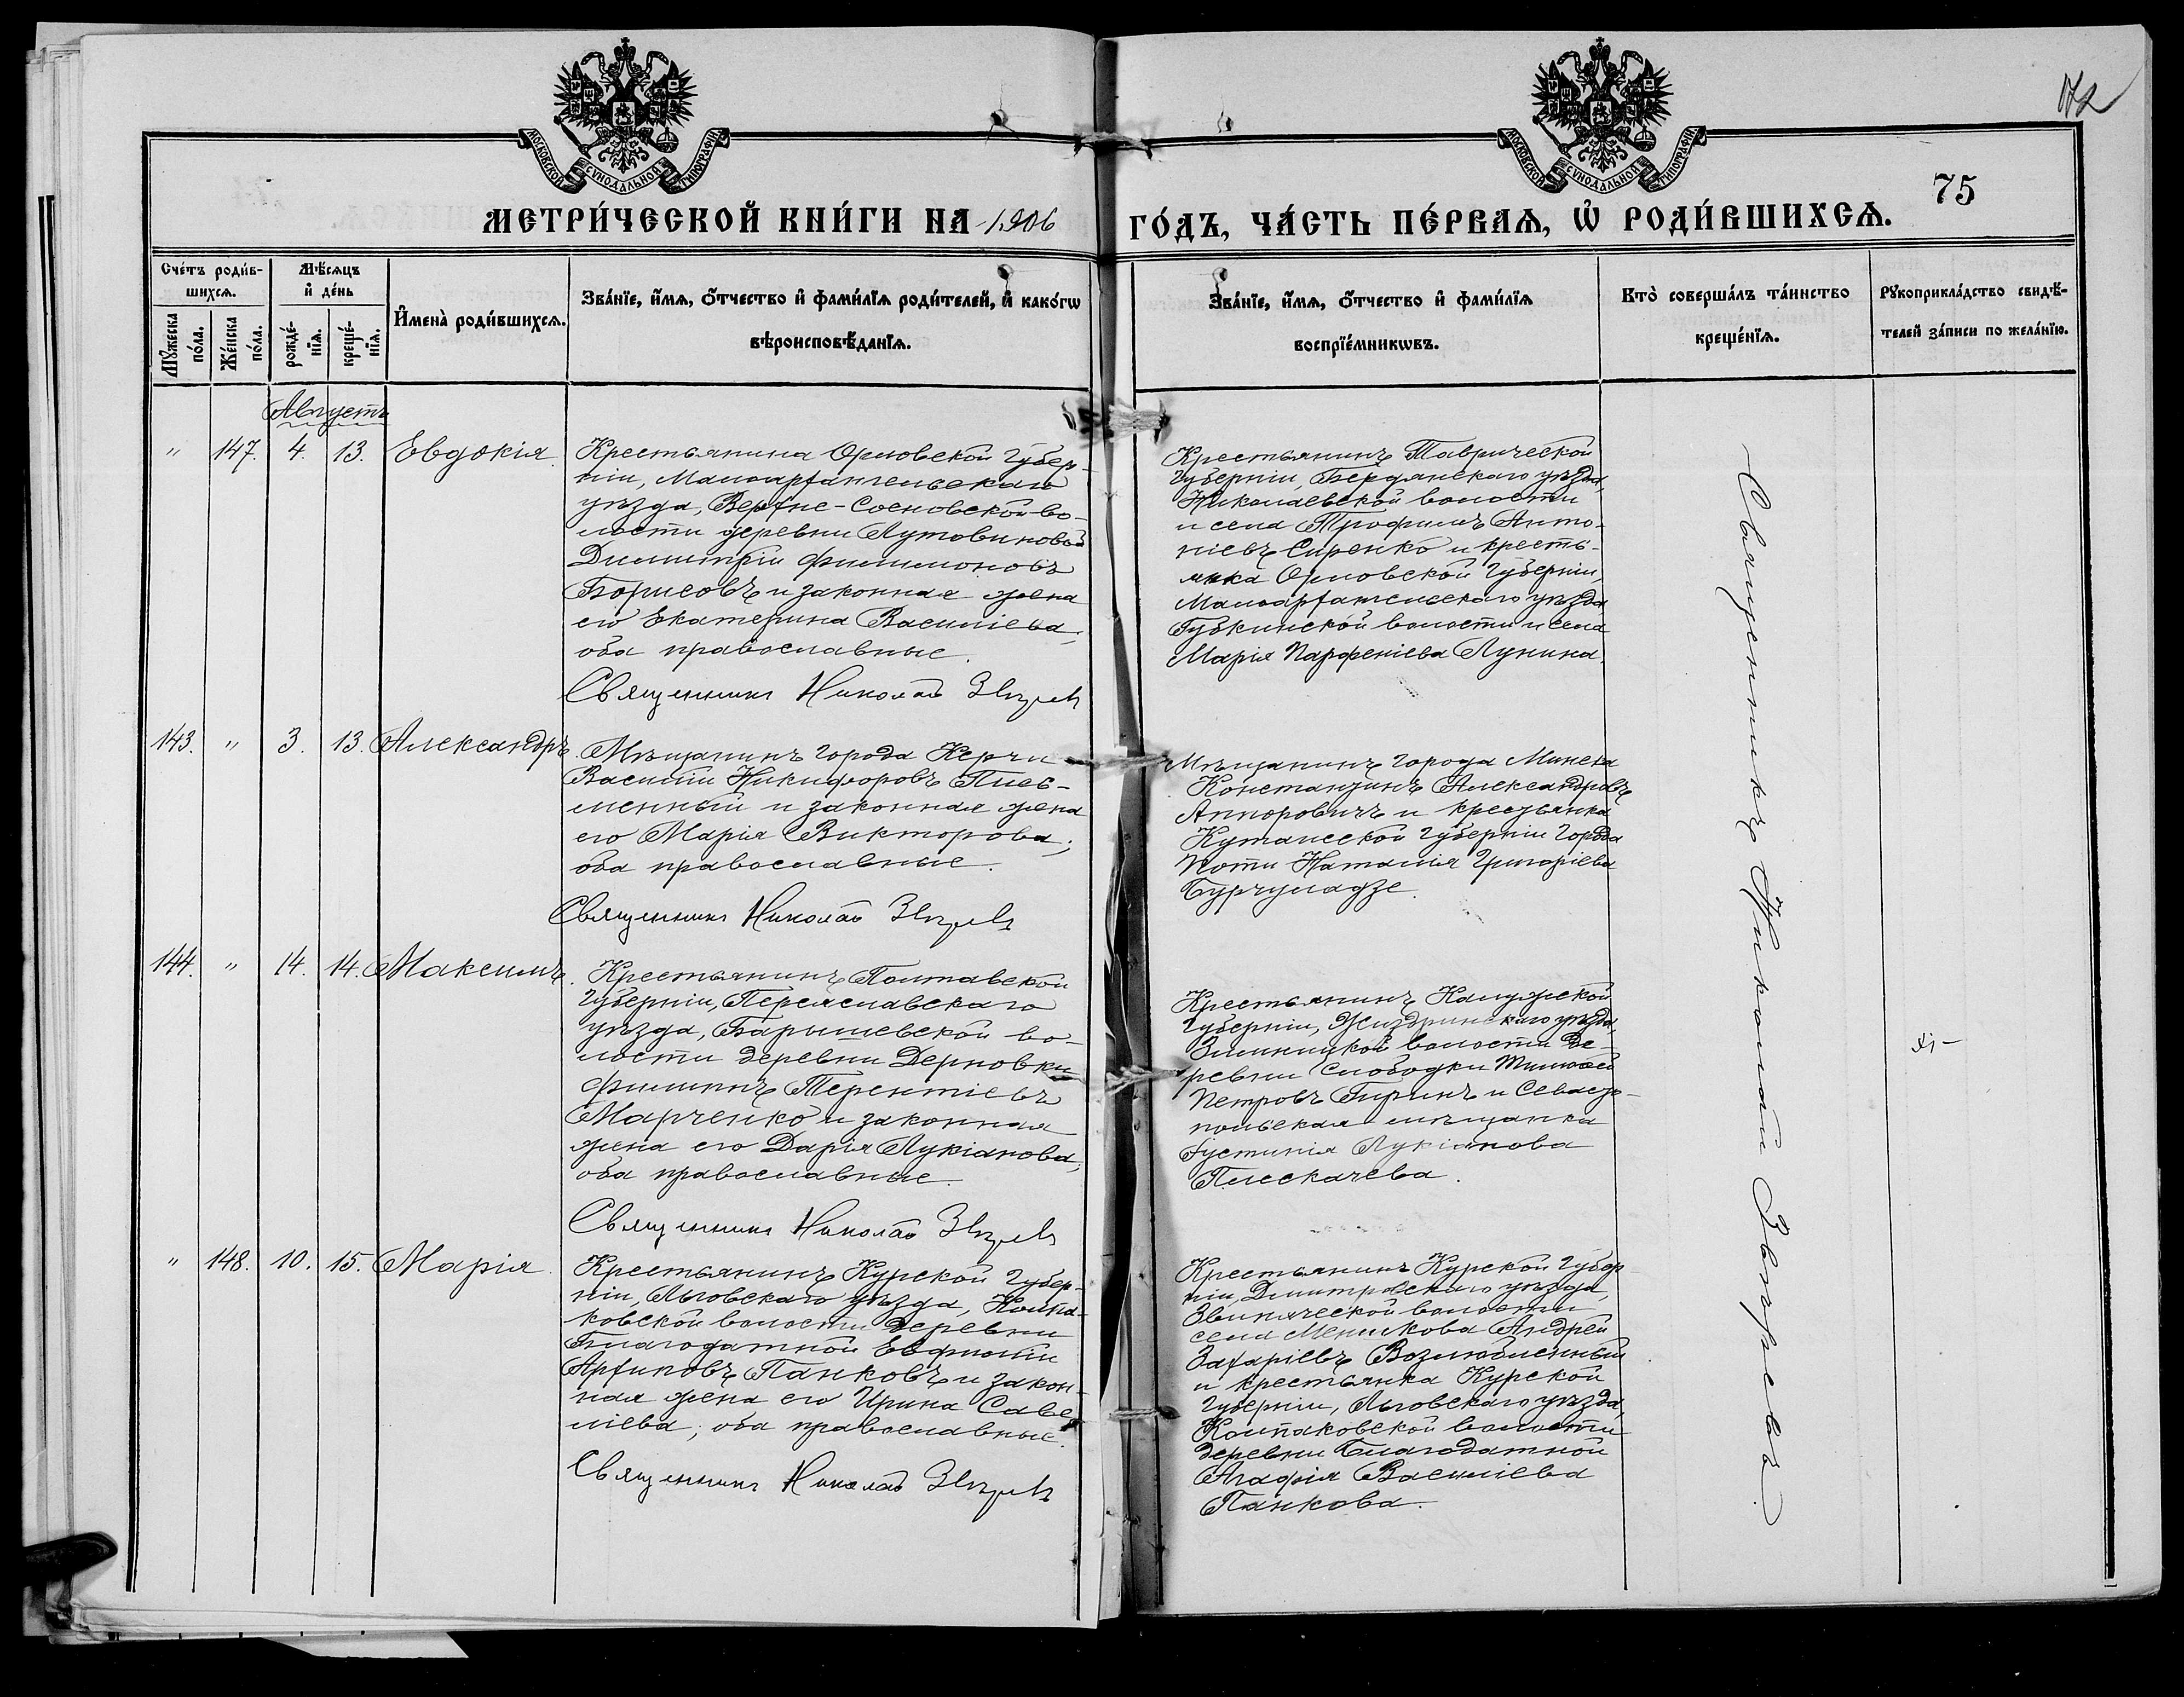 172
МОСКОВСКОЙ СѴНОДАЛЬНОЙ ТИПОГРАФІИ
МОСКОВСКОЙ СѴНОДАЛЬНОЙ ТИПОГРАФІИ
75
МЕТРИ́ЧЕСКОЙ КНИ́ГИ НА 1906 ГО́ДЪ, ЧА́СТЬ ПЕ́РВАѦ, Ѡ҆ РОДИ́ВШИХСѦ.
Сче́тъ роди́в-
шихсѧ.
Мѣ́сѧцъ
и҆ де́нь
Мꙋ́жеска
по́ла.
Же́нска
по́ла.
рожде́-
нїѧ.
креще́-
нїѧ.
И҆мена̀ роди́вшихсѧ.
Зва́нїе, и҆́мѧ, ѻ҆́тчество и҆ фами́лїѧ роди́телей, и҆ како́гѡ
вѣроисповѣ́данїѧ.
Зва́нїе, и҆́мѧ, ѻ҆́тчество и҆ фами́лїѧ
воспрїе́мникѡвъ.
Кто̀ соверша́лъ та́инство
креще́нїѧ.
Рꙋкоприкла́дство свидѣ́-
телей за́писи по жела́нїю.
Августъ
" 147. 4. 13. Евдокія.
Крестьянина Орловской губер-
ніи, Малоархангельскаго
уѣзда, Верхне-Сосновской во-
лости деревни Лутовиновой
Димитрій Филимоновъ
Борисовъ и законная жена
его Екатерина Василіева,
оба православные.
Священникъ Николай Звѣревъ
Крестьянинъ Таврической
губерніи, Бердянскаго уѣзда,
Николаевской волости
и села Трофимъ Анто-
ніевъ Сиренко и кресть-
янка Орловской губерніи,
Малоархангельскаго уѣзда
Губкинской волости и села
Марія Парфеніева Лунина.
Священникъ Николай Звѣревъ.
143. " 3. 13. Александръ.
Мѣщанинъ города Керчи
Василій Никифоровъ Пись-
менный и законная жена
его Марія Викторова;
оба православные.
Священникъ Николай Звѣревъ
Мѣщанинъ города Минска
Константинъ Александровъ
и крестьянка
Кутаисской губерніи города
Поти Наталія Григоріева
Бурчуладзе.
144. " 14. 14. Максимъ.
Крестьянинъ Полтавской
губерніи, Переяславскаго
уѣзда, Барышевской во-
лости деревни Дерновки
Филиппъ Терентіевъ
Марченко и законная
жена его Дарія Лукіанова,
оба православные.
Священникъ Николай Звѣревъ
Крестьянинъ Калужской
губерніи, Жиздринскаго уѣзда,
Зимницкой волости де-
ревни Слободки Тимофей
Петровъ Гиринъ и Севасто-
польская мѣщанка
Іустинія Лукіанова
Плескачева.
" 148. 10. 15. Марія.
Крестьянинъ Курской губер-
ніи, Льговскаго уѣзда, Колпа-
ковской волости деревни
Благодатной Евфимій
Архиповъ Панковъ и закон-
ная жена его Ирина Саве-
ліева; оба православные.
Священникъ Николай Звѣревъ
Крестьянинъ Курской губер-
ніи, Димитровскаго уѣзда,
волости
села Меншкова Андрей
Захаріевъ Возлюбленный
и крестьянка Курской
губерніи, Льговскаго уѣзда,
Колпаковской волости
деревни Благодатной
Агафія Василіева
Панкова.